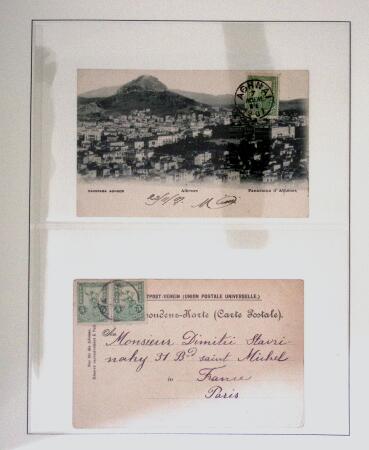 ΑΘΗΝΑΙ
7
ΠΑΝΟΡΑΜΑ ΑΘΗΝΩΝ
Athènes
Panorama d'Athènes
TPOST-VEREIN (UNION POSTALE UNIVERSELLE.)
ondenz-Karte (Carte Postale).
Monsieur Dimitri Stavri-
nahy 31 Bd saint Michel
in
France
Paris